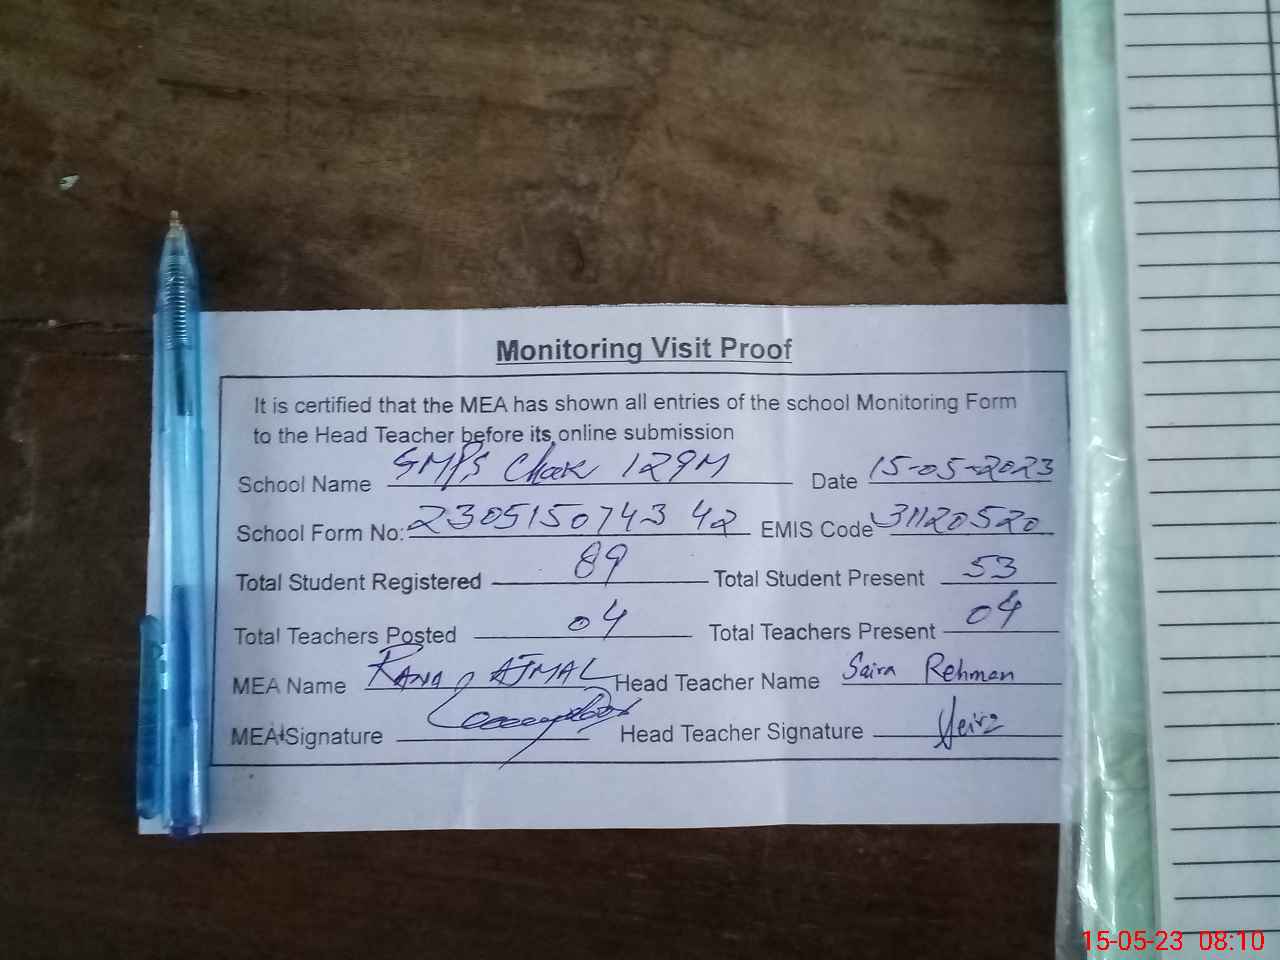 Monitoring Visit Proof
It is certified that the MEA has shown all entries of the school Monitoring Form
to the Head Teacher before its online submission
School Name GMPS Chak 129M Date 15-05-2023
School Form No: 2305150743 42 EMIS Code 31120520
Total Student Registered 89 Total Student Present 53
Total Teachers Posted 04 Total Teachers Present 04
MEA Name RANA AJMAL Head Teacher Name Saira Rehman
MEA Signature Head Teacher Signature
15-05-23 08:10